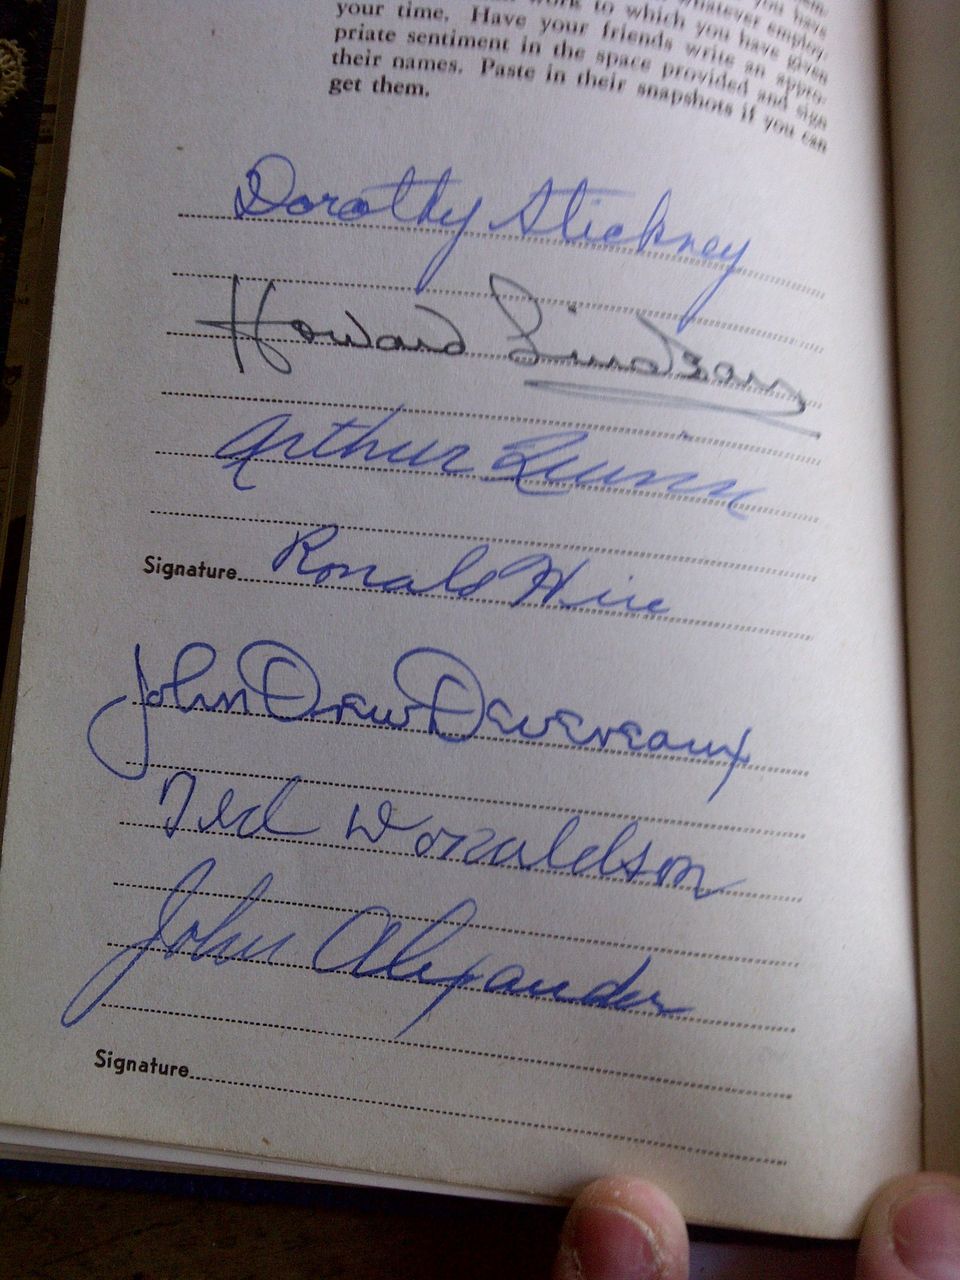 you have
work to which you have given
your time. Have your friends write an appro-
priate sentiment in the space provided and sign
their names. Paste in their snapshots if you can
get them.
Dorothy Stickney
Howard Lindsay
Arthur Quinn
Signature Ronald
John Drew Devereaux
Ted Donaldson
John Alexander
Signature